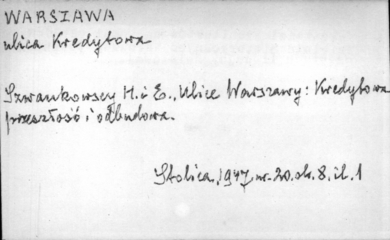 WARSZAWA
ulica Kredytowa
Szwankowscy H. i E., Ulice Warszawy: Kredytowa
przeszłość i odbudowa.
Stolica, 1947 nr. 20. str. 8. il. 1